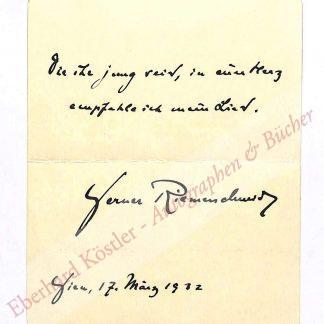 Die ihr jung seid, in euer Herz
empfehle ich mein Lied.
Werner Riemerschmid
Wien, 17. März 1932
Eberhard Köstler - Autographen & Bücher